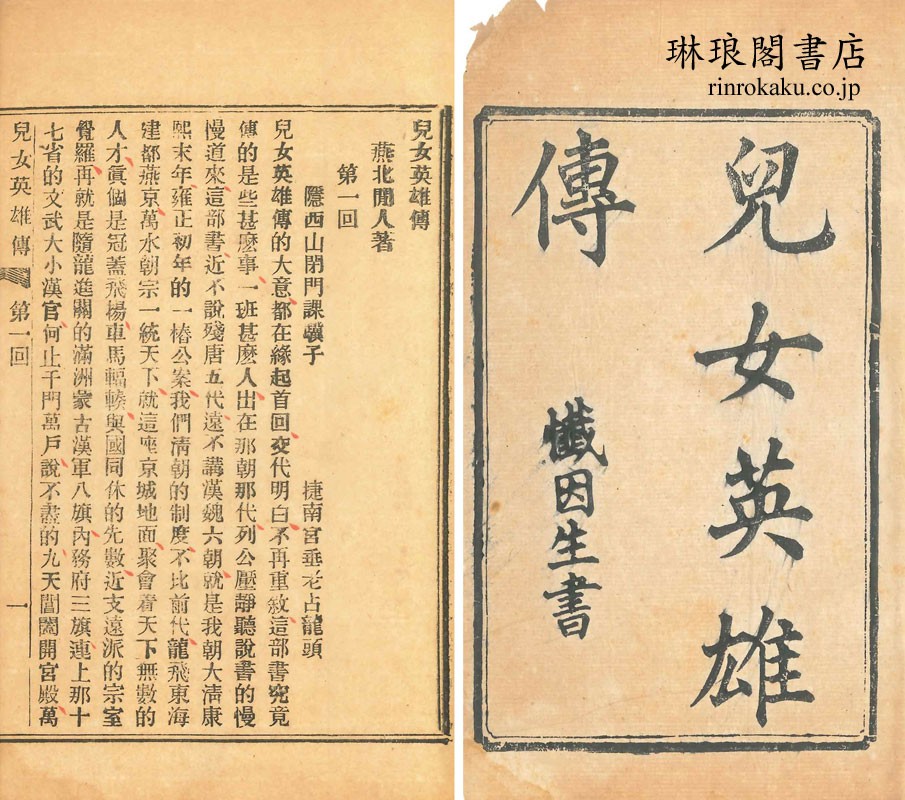 琳琅閣書店
rinrokaku.co.jp
兒女英雄
傳
懺因生書
兒女英雄傳
燕北閒人著
第一回
隱西山閉門課驥子　捷南宮垂老占龍頭
兒女英雄傳的大意都在緣起首回交代明白不再重敘這部書究竟
傳的是些甚麼事一班甚麼人出在那朝那代列公壓靜聽說書的慢
慢道來這部書近不說殘唐五代遠不講漢魏六朝就是我朝大清康
熙末年雍正初年的一樁公案我們清朝的制度不比前代龍飛東海
建都燕京萬水朝宗一統天下就這座京城地面聚會着天下無數的
人才眞個是冠蓋飛揚車馬輻輳與國同休的先數近支遠派的宗室
覺羅再就是隨龍進關的滿洲蒙古漢軍八旗內務府三旗連上那十
七省的文武大小漢官何止千門萬戶說不盡的九天閶闔開宮殿萬
兒女英雄傳　第一回　一